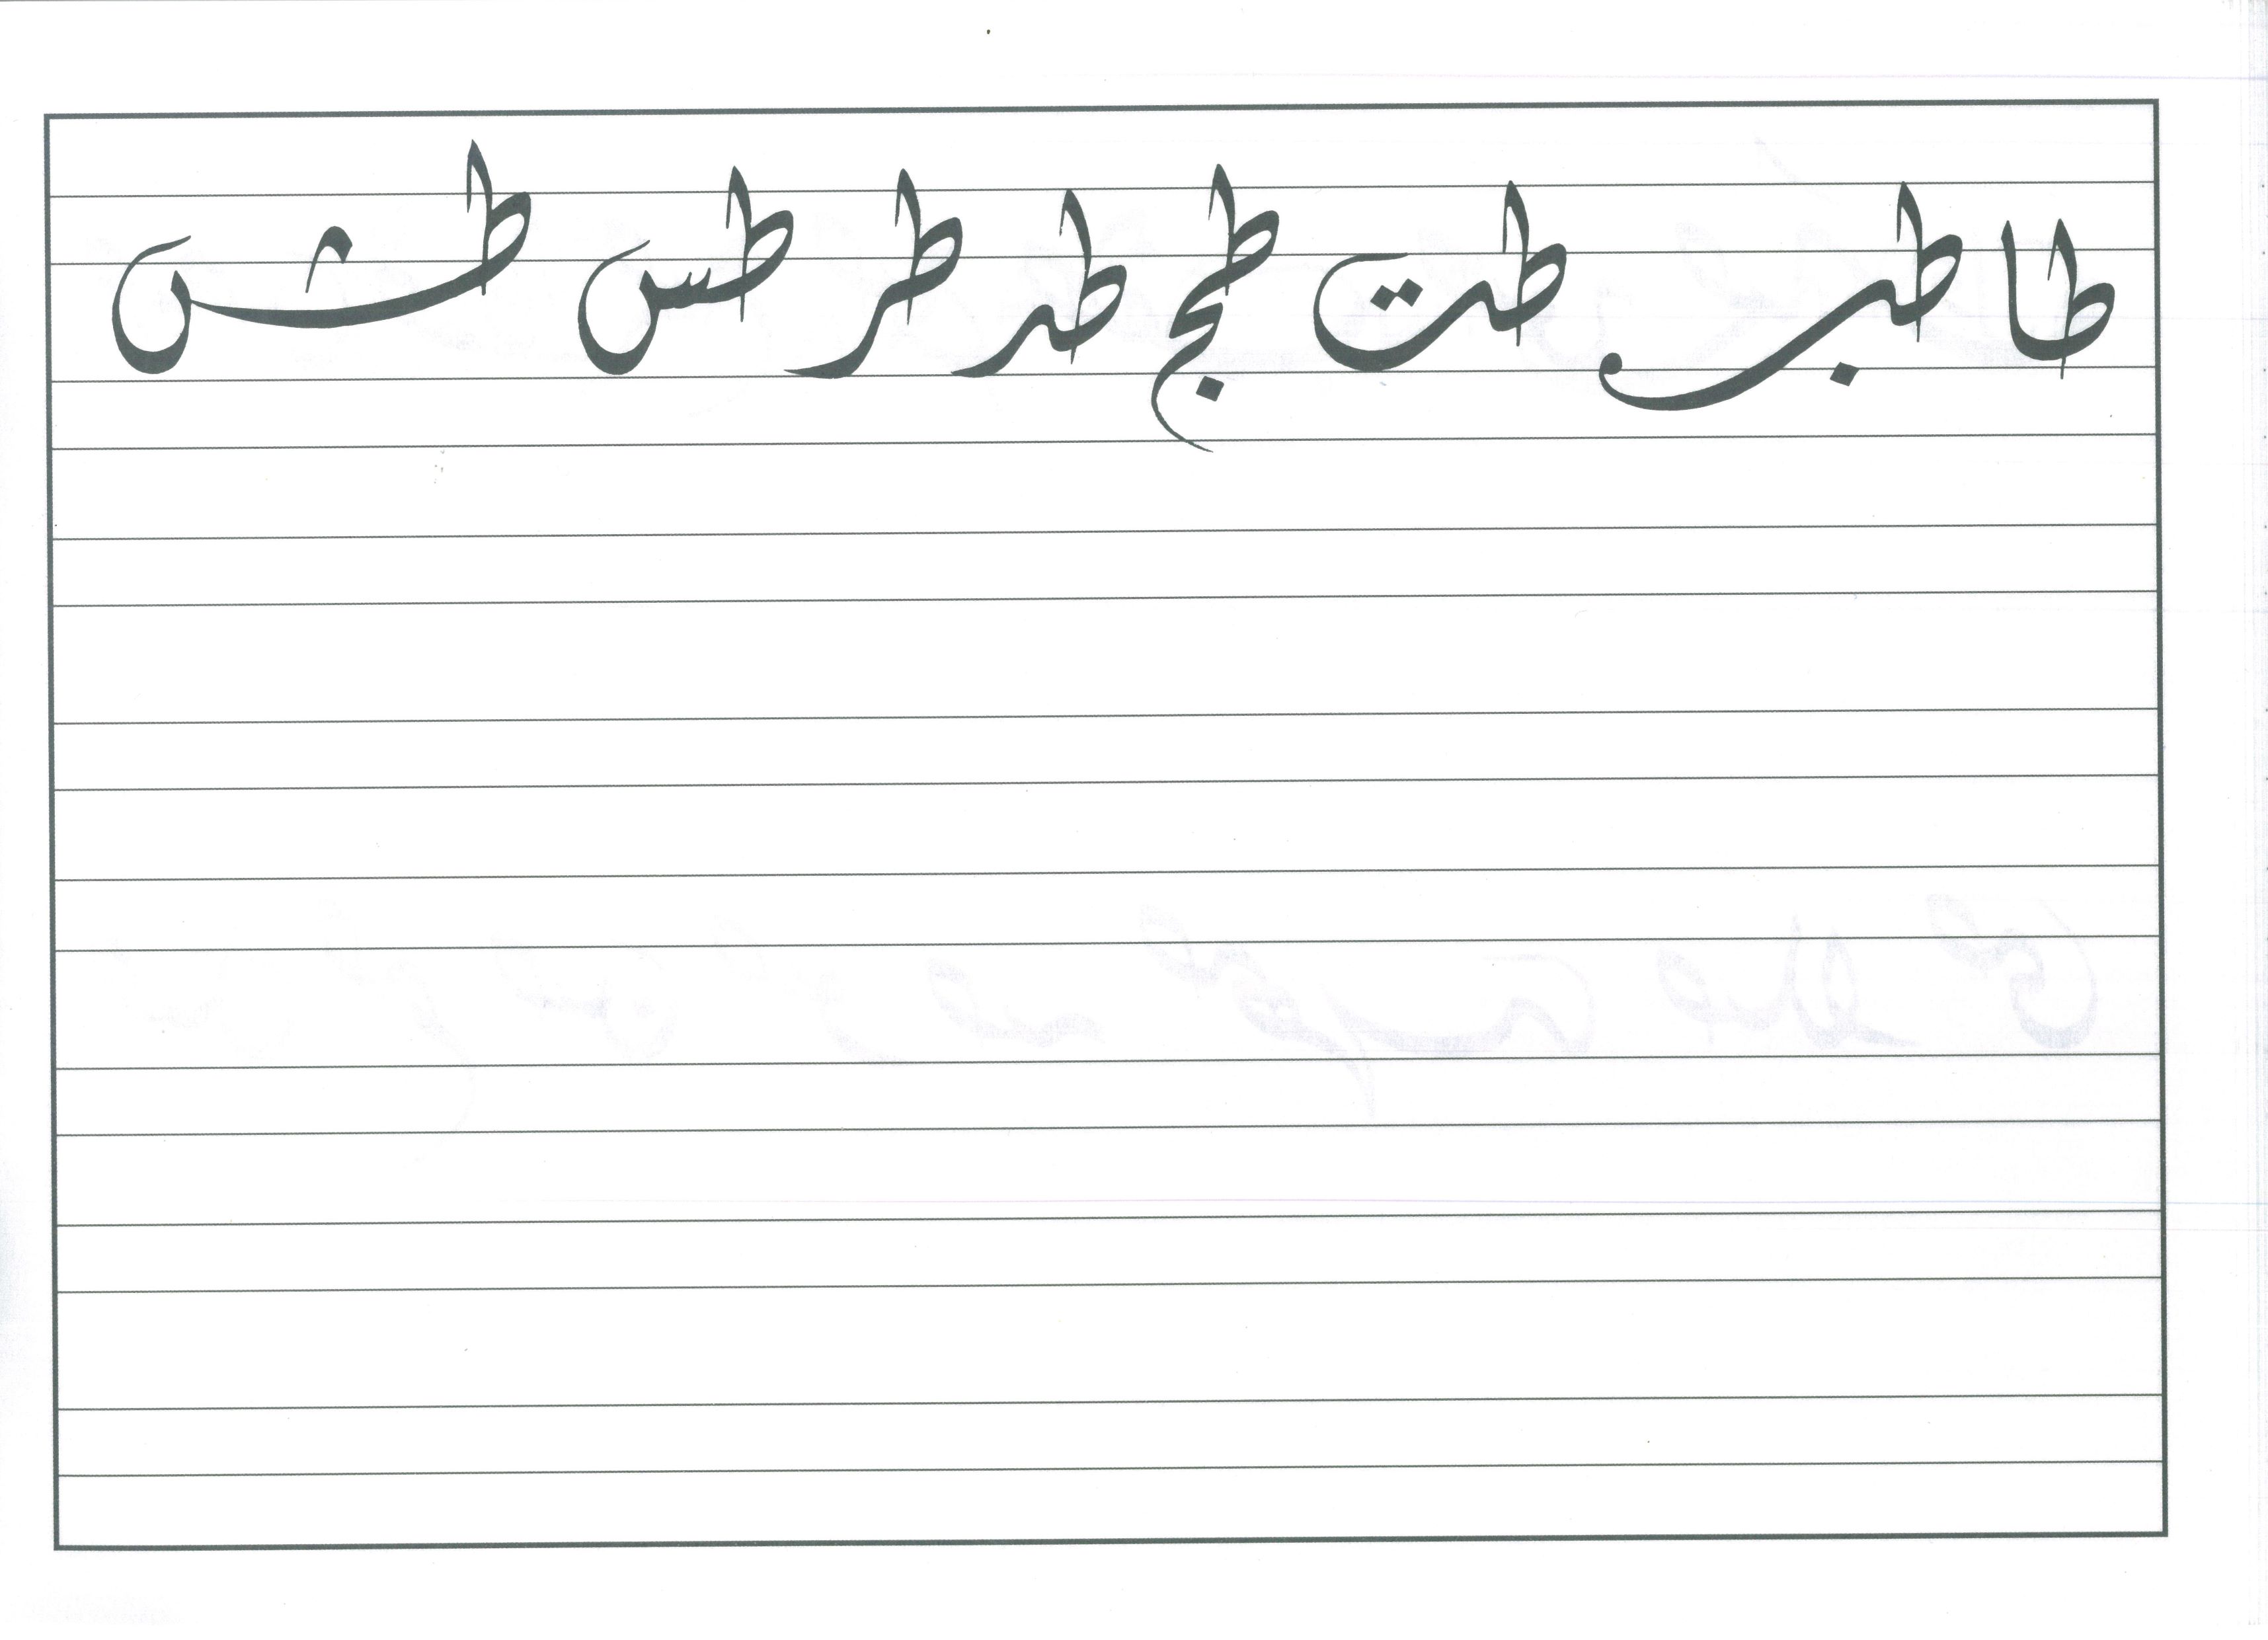 طا طب طت طج طد طر طس طش